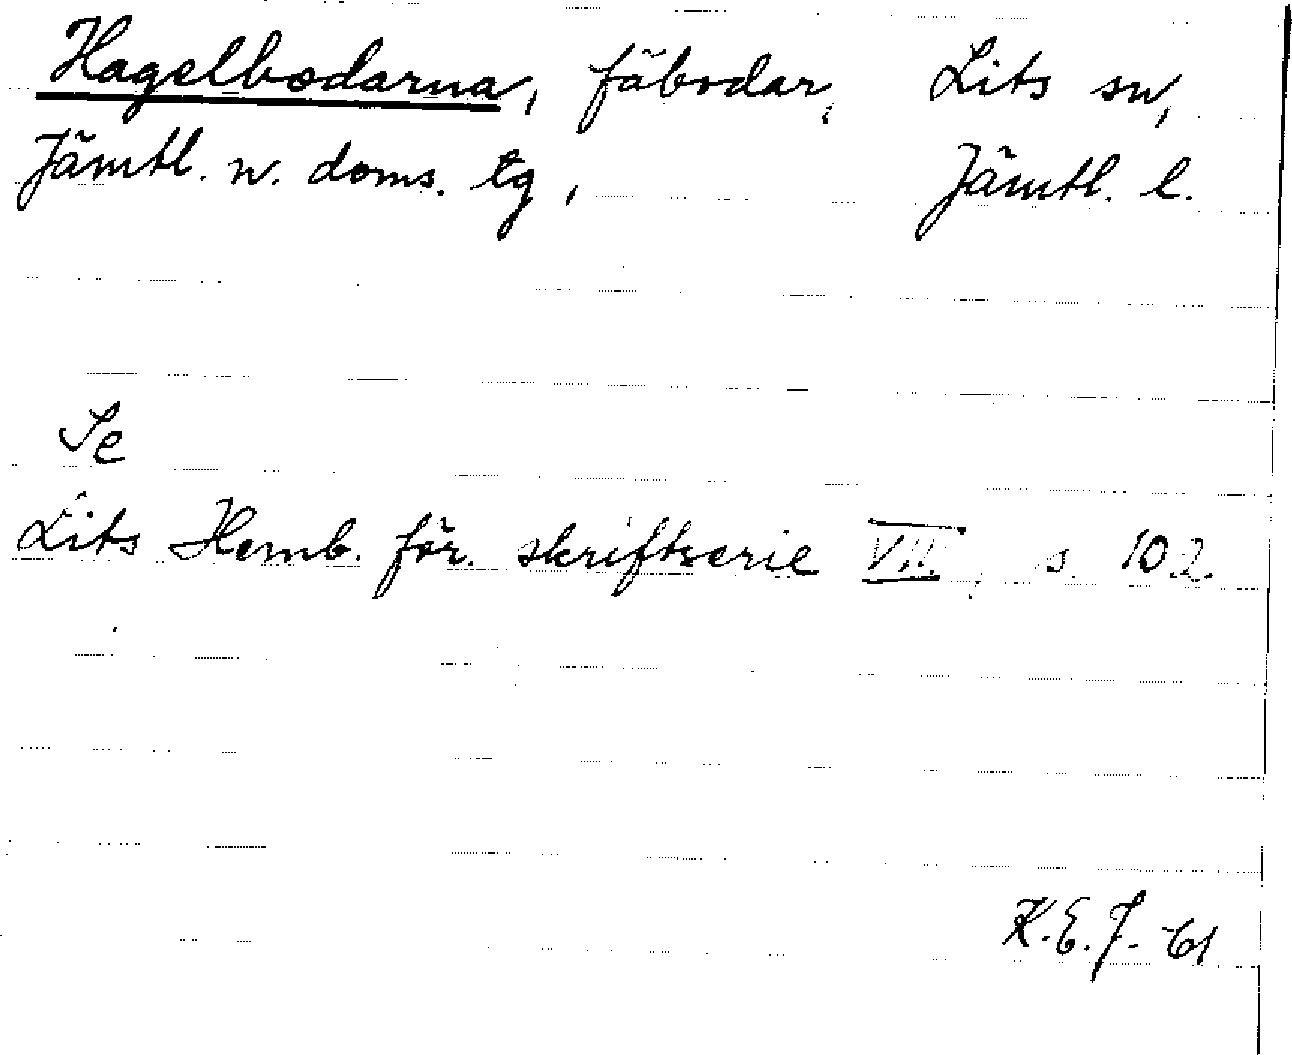 Hagelbodarna, fäbodar, Lits sn,
Jämtl. n. doms. tg, Jämtl. l.
Se
Lits Hemb. för. skriftserie VII, s. 102.
K.E.J. -61